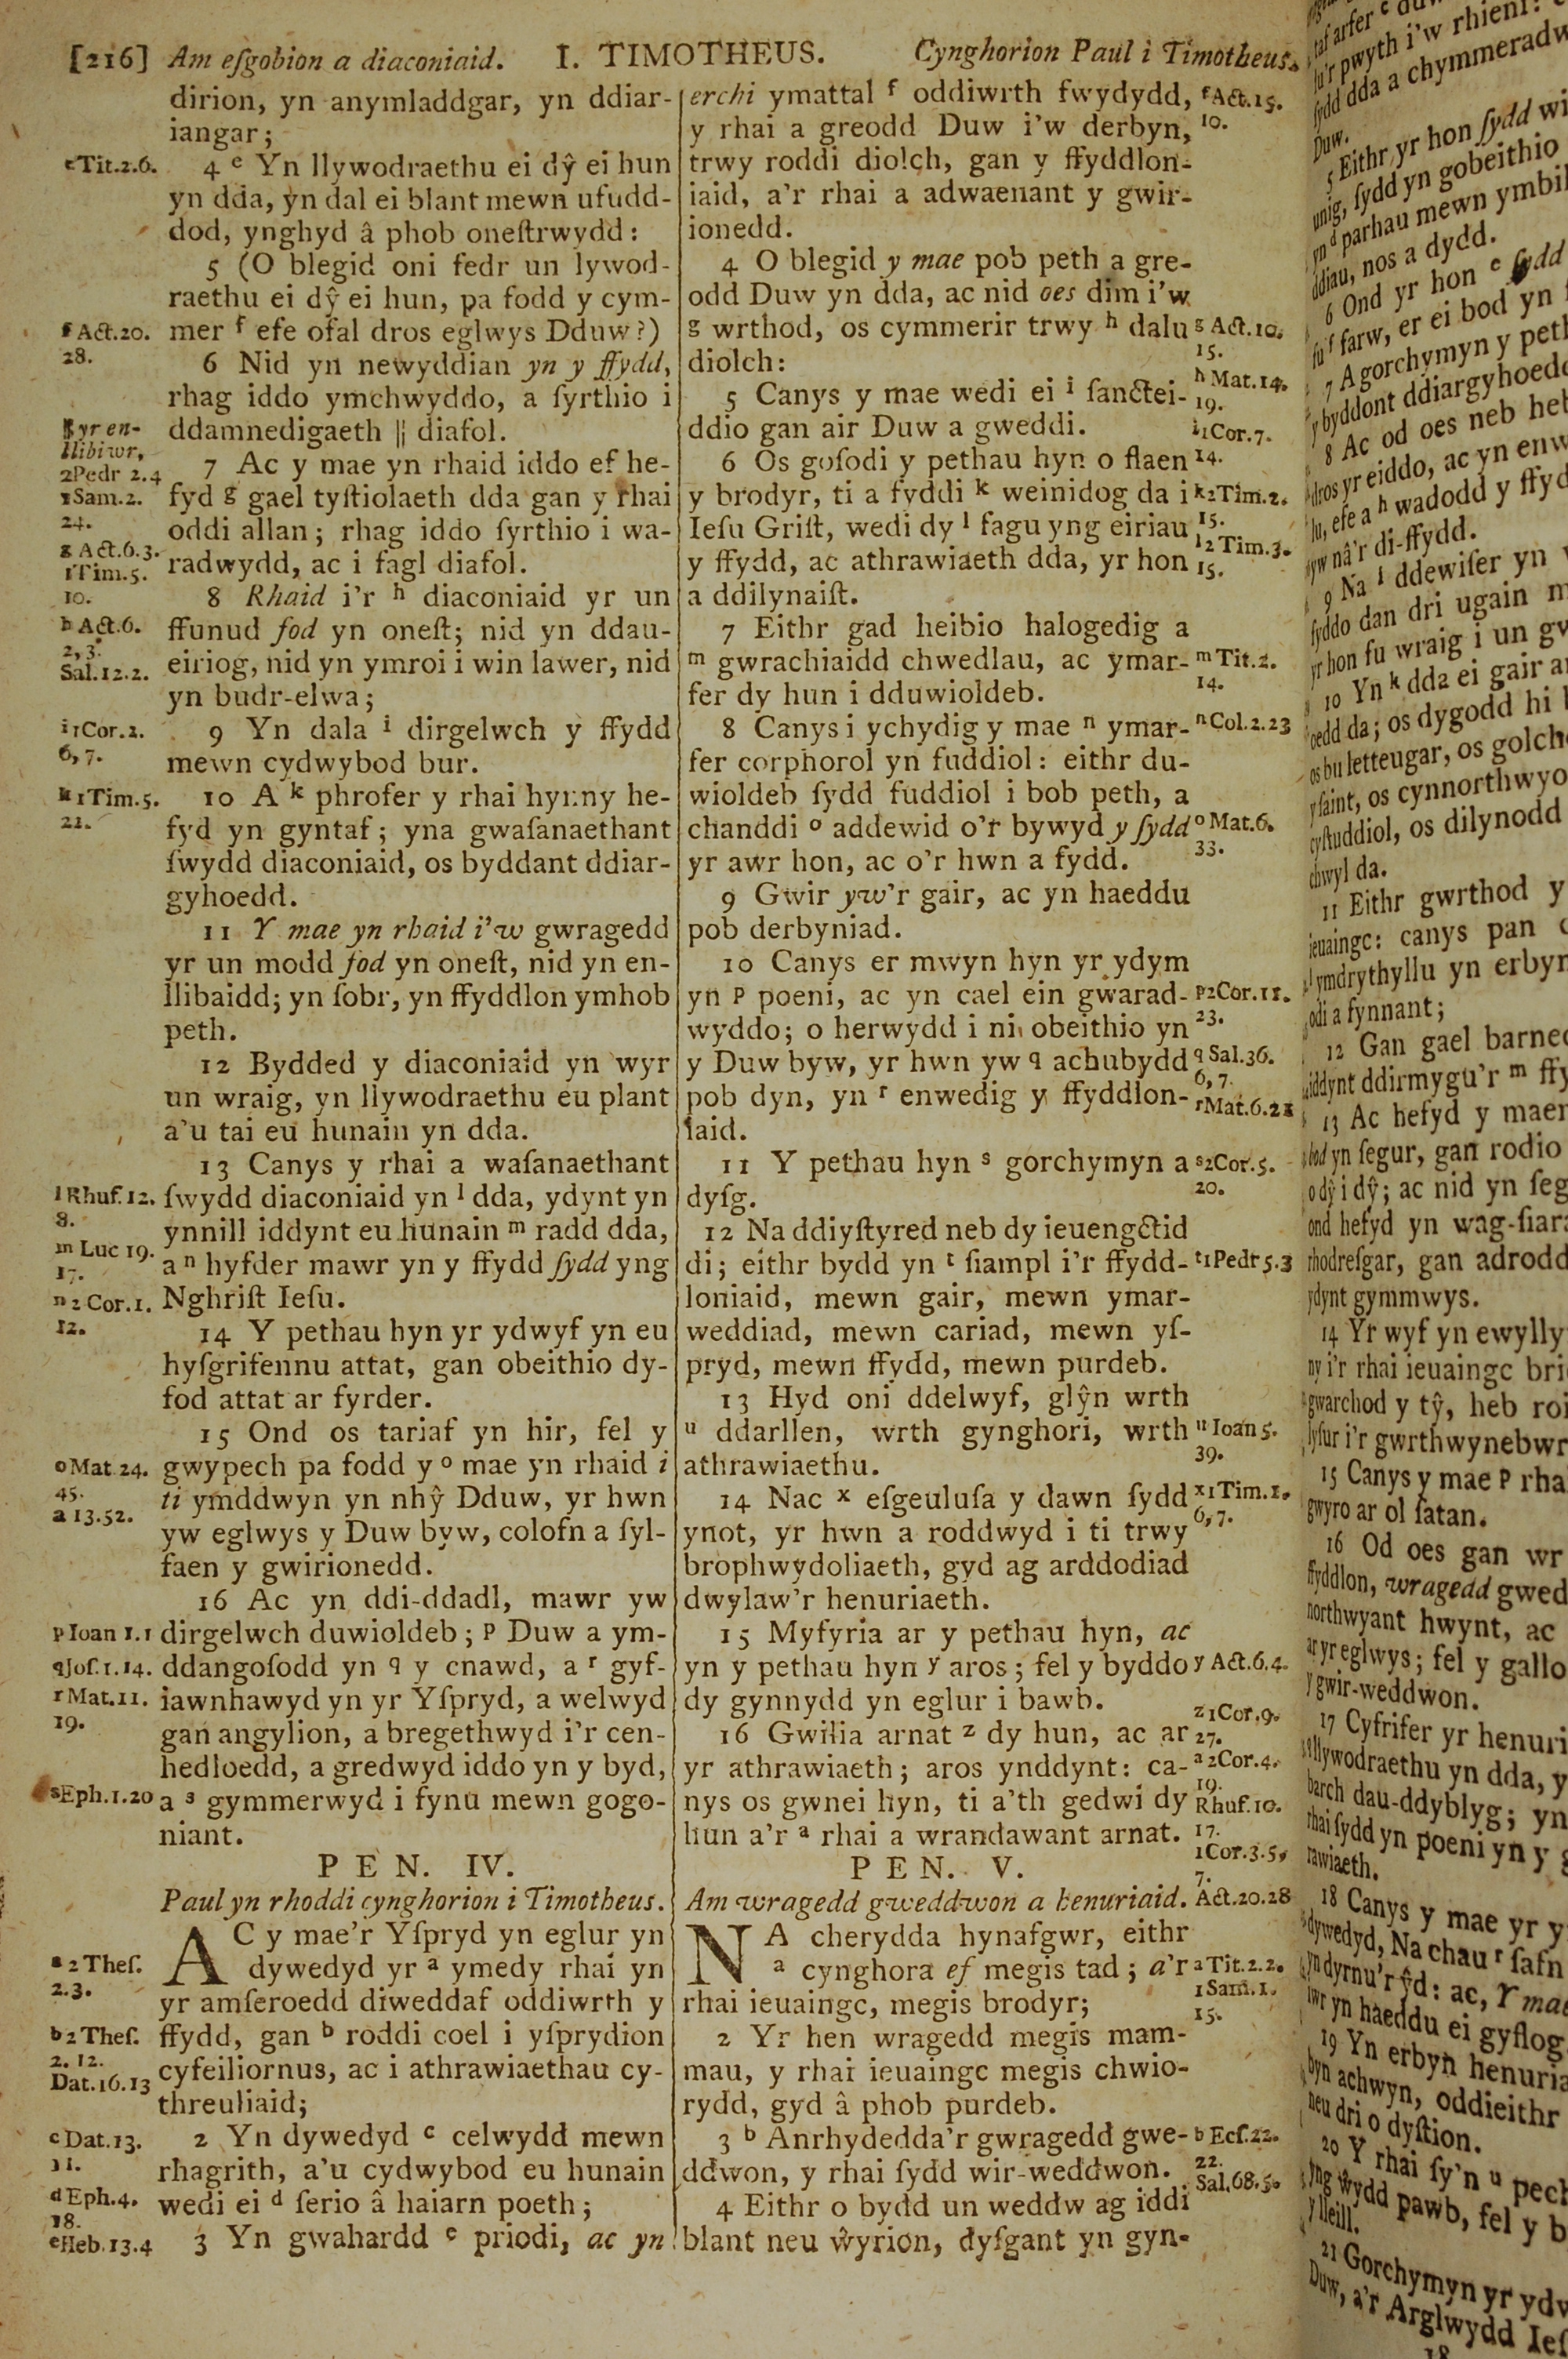 [216] Am eſgobion a diaconiaid. I. TIMOTHEUS. Cynghorion Paul i Timotheus.
dirion, yn anymladdgar, yn ddiar-
iangar;
4 ᵉ Yn llywodraethu ei dŷ ei hun
yn dda, yn dal ei blant mewn ufudd-
dod, ynghyd â phob oneſtrwydd:
5 (O blegid oni fedr un lywod-
raethu ei dŷ ei hun, pa fodd y cym-
mer ᶠ efe ofal dros eglwys Dduw?)
6 Nid yn newyddian yn y ffydd,
rhag iddo ymchwyddo, a ſyrthio i
ddamnedigaeth || diafol.
7 Ac y mae yn rhaid iddo ef he-
fyd ᵍ gael tyſtiolaeth dda gan y rhai
oddi allan; rhag iddo ſyrthio i wa-
radwydd, ac i fagl diafol.
8 Rhaid i'r ʰ diaconiaid yr un
ffunud fod yn oneſt; nid yn ddau-
eiriog, nid yn ymroi i win lawer, nid
yn budr-elwa;
9 Yn dala ⁱ dirgelwch y ffydd
mewn cydwybod bur.
10 A ᵏ phrofer y rhai hynny he-
fyd yn gyntaf; yna gwaſanaethant
ſwydd diaconiaid, os byddant ddiar-
gyhoedd.
11 Y mae yn rhaid i'w gwragedd
yr un modd fod yn oneſt, nid yn en-
llibaidd; yn ſobr, yn ffyddlon ymhob
peth.
12 Bydded y diaconiaid yn wyr
un wraig, yn llywodraethu eu plant
a'u tai eu hunain yn dda.
13 Canys y rhai a waſanaethant
ſwydd diaconiaid yn ˡ dda, ydynt yn
ynnill iddynt eu hunain ᵐ radd dda,
a ⁿ hyfder mawr yn y ffydd ſydd yng
Nghriſt Ieſu.
14 Y pethau hyn yr ydwyf yn eu
hyſgrifennu attat, gan obeithio dy-
fod attat ar fyrder.
15 Ond os tariaf yn hir, fel y
gwypech pa fodd y ᵒ mae yn rhaid i
ti ymddwyn yn nhŷ Dduw, yr hwn
yw eglwys y Duw byw, colofn a ſyl-
faen y gwirionedd.
16 Ac yn ddi-ddadl, mawr yw
dirgelwch duwioldeb; ᵖ Duw a ym-
ddangoſodd yn q y cnawd, a ʳ gyf-
iawnhawyd yn yr Yſpryd, a welwyd
gan angylion, a bregethwyd i'r cen-
hedloedd, a gredwyd iddo yn y byd,
a ˢ gymmerwyd i fynu mewn gogo-
niant.
PEN. IV.
Paul yn rhoddi cynghorion i Timotheus.
AC y mae'r Yſpryd yn eglur yn
dywedyd yr ᵃ ymedy rhai yn
yr amſeroedd diweddaf oddiwrth y
ffydd, gan ᵇ roddi coel i yſprydion
cyfeiliornus, ac i athrawiaethau cy-
threuliaid;
2 Yn dywedyd ᶜ celwydd mewn
rhagrith, a'u cydwybod eu hunain
wedi ei ᵈ ſerio â haiarn poeth;
3 Yn gwahardd ᵉ priodi, ac yn
ᵉTit.2.6.
ᶠAct.20.
28.
|| yr en-
llibiwr,
2Pedr 2.4
1Sam.2.
24.
ᵍ Act.6.3.
1Tim.5.
10.
ʰ Act.6.
2, 3.
Sal.12.2.
ⁱ1Cor.2.
6, 7.
ᵏ1Tim.5.
21.
ˡRhuf.12.
8.
ᵐ Luc 19.
17.
ⁿ2Cor.1.
12.
ᵒMat.24.
45.
a 13.52.
ᵖIoan 1.1
qJoſ.1.14.
ʳMat.11.
19.
ˢEph.1.20
ᵃ2Theſ.
2.3.
ᵇ2Theſ.
2. 12.
Dat.16.13
ᶜDat.13.
11.
ᵈEph.4.
18.
ᵉHeb.13.4
erchi ymattal ᶠ oddiwrth fwydydd,
y rhai a greodd Duw i'w derbyn,
trwy roddi diolch, gan y ffyddlon-
iaid, a'r rhai a adwaenant y gwir-
ionedd.
4 O blegid y mae pob peth a gre-
odd Duw yn dda, ac nid oes dim i'w
ᵍ wrthod, os cymmerir trwy ʰ dalu
diolch:
5 Canys y mae wedi ei ⁱ ſanctei-
ddio gan air Duw a gweddi.
6 Os goſodi y pethau hyn o flaen
y brodyr, ti a fyddi ᵏ weinidog da i
Ieſu Griſt, wedi dy ˡ fagu yng eiriau
y ffydd, ac athrawiaeth dda, yr hon
a ddilynaiſt.
7 Eithr gad heibio halogedig a
ᵐ gwrachiaidd chwedlau, ac ymar-
fer dy hun i dduwioldeb.
8 Canys i ychydig y mae ⁿ ymar-
fer corphorol yn fuddiol: eithr du-
wioldeb ſydd fuddiol i bob peth, a
chanddi ᵒ addewid o'r bywyd y ſydd
yr awr hon, ac o'r hwn a fydd.
9 Gwir yw'r gair, ac yn haeddu
pob derbyniad.
10 Canys er mwyn hyn yr ydym
yn ᵖ poeni, ac yn cael ein gwarad-
wyddo; o herwydd i ni obeithio yn
y Duw byw, yr hwn yw q achubydd
pob dyn, yn ʳ enwedig y ffyddlon-
iaid.
11 Y pethau hyn ˢ gorchymyn a
dyſg.
12 Na ddiyſtyred neb dy ieuengctid
di; eithr bydd yn ᵗ ſiampl i'r ffydd-
loniaid, mewn gair, mewn ymar-
weddiad, mewn cariad, mewn yſ-
pryd, mewn ffydd, mewn purdeb.
13 Hyd oni ddelwyf, glŷn wrth
ᵘ ddarllen, wrth gynghori, wrth
athrawiaethu.
14 Nac ˣ eſgeuluſa y dawn ſydd
ynot, yr hwn a roddwyd i ti trwy
brophwydoliaeth, gyd ag arddodiad
dwylaw'r henuriaeth.
15 Myfyria ar y pethau hyn, ac
yn y pethau hyn ʸ aros; fel y byddo
dy gynnydd yn eglur i bawb.
16 Gwilia arnat ᶻ dy hun, ac ar
yr athrawiaeth; aros ynddynt: ca-
nys os gwnei hyn, ti a'th gedwi dy
hun a'r ᵃ rhai a wrandawant arnat.
PEN. V.
Am wragedd gweddwon a henuriaid.
NA cherydda hynafgwr, eithr
ᵃ cynghora ef megis tad; a'r
rhai ieuaingc, megis brodyr;
2 Yr hen wragedd megis mam-
mau, y rhai ieuaingc megis chwio-
rydd, gyd â phob purdeb.
3 ᵇ Anrhydedda'r gwragedd gwe-
ddwon, y rhai ſydd wir-weddwon.
4 Eithr o bydd un weddw ag iddi
blant neu ŵyrion, dyſgant yn gyn-
ᶠAct.15.
10.
ᵍ Act.10.
15.
ʰ Mat.14.
19.
ⁱ1Cor.7.
14.
ᵏ2Tim.2.
15.
ˡ2Tim.3.
15.
ᵐTit.1.
14.
ⁿCol.2.23
ᵒMat.6.
33.
ᵖ2Cor.11.
23.
qSal.36.
6, 7.
ʳMat.6.21
ˢ2Cor.5.
20.
ᵗ1Pedr5.3
ᵘIoan5.
39.
ˣ1Tim.1.
6, 7.
ʸ Act.6.4.
ᶻ1Cor.9.
27.
ᵃ2Cor.4.
19.
Rhuf.10.
17.
1Cor.3.5,
7.
Act.20.28
ᵃTit.2.2.
1Sam.1.
15.
ᵇ Ecſ.22.
22.
Sal.68.5.
arfer ᶜ
pwyth i'w rhieni:
ſydd dda a chymmeradw
Duw.
5 Eithr yr hon ſydd wi
unig, ſydd yn gobeithio
yn ᵈ parhau mewn ymbil
ddiau, nos a dydd.
6 Ond yr hon ᵉ ſydd
fu ᶠ farw, er ei bod yn
7 A gorchymyn y peth
y byddont ddiargyhoedd
8 Ac od oes neb heb
dros yr eiddo, ac yn enw
lu, efe a ʰ wadodd y ffyd
yw nâ'r di-ffydd.
9 Na ⁱ ddewiſer yn
ſyddo dan dri ugain m
yr hon fu wraig i un gw
10 Yn ᵏ dda ei gair a
oedd da; os dygodd hi
os bu letteugar, os golch
y ſaint, os cynnorthwyo
cyſtuddiol, os dilynodd
chwyl da.
11 Eithr gwrthod y
ieuaingc: canys pan
ymdrythyllu yn erbyn
odi a fynnant;
12 Gan gael barne
iddynt ddirmygu'r ᵐ ffy
13 Ac hefyd y mae
bod yn ſegur, gan rodio
o dŷ i dŷ; ac nid yn ſeg
ond hefyd yn wag-ſiar
rhodreſgar, gan adrodd
ydynt gymmwys.
14 Yr wyf yn ewylly
ny i'r rhai ieuaingc bri
gwarchod y tŷ, heb roi
lyſur i'r gwrthwynebwr
15 Canys y mae ᵖ rha
gwyro ar ol ſatan.
16 Od oes gan wr
ffyddlon, wragedd gwed
northwyant hwynt, ac
ar yr eglwys; fel y gallo
y gwir-weddwon.
17 Cyfrifer yr henuri
llywodraethu yn dda, y
barch dau-ddyblyg; yn
rhai ſydd yn poeni yn y
rawiaeth.
18 Canys y mae yr y
dywedyd, Na chau ʳ ſafn
yn dyrnu'r ŷd: ac, Y mae
wr yn haeddu ei gyflog
19 Yn erbyn henuria
byn achwyn, oddieithr
neu dri o dyſtion.
20 Y rhai ſy'n ᵘ pech
yng wydd pawb, fel y b
y lleill.
21 Gorchymyn yr ydw
Duw, a'r Arglwydd Ieſ
18